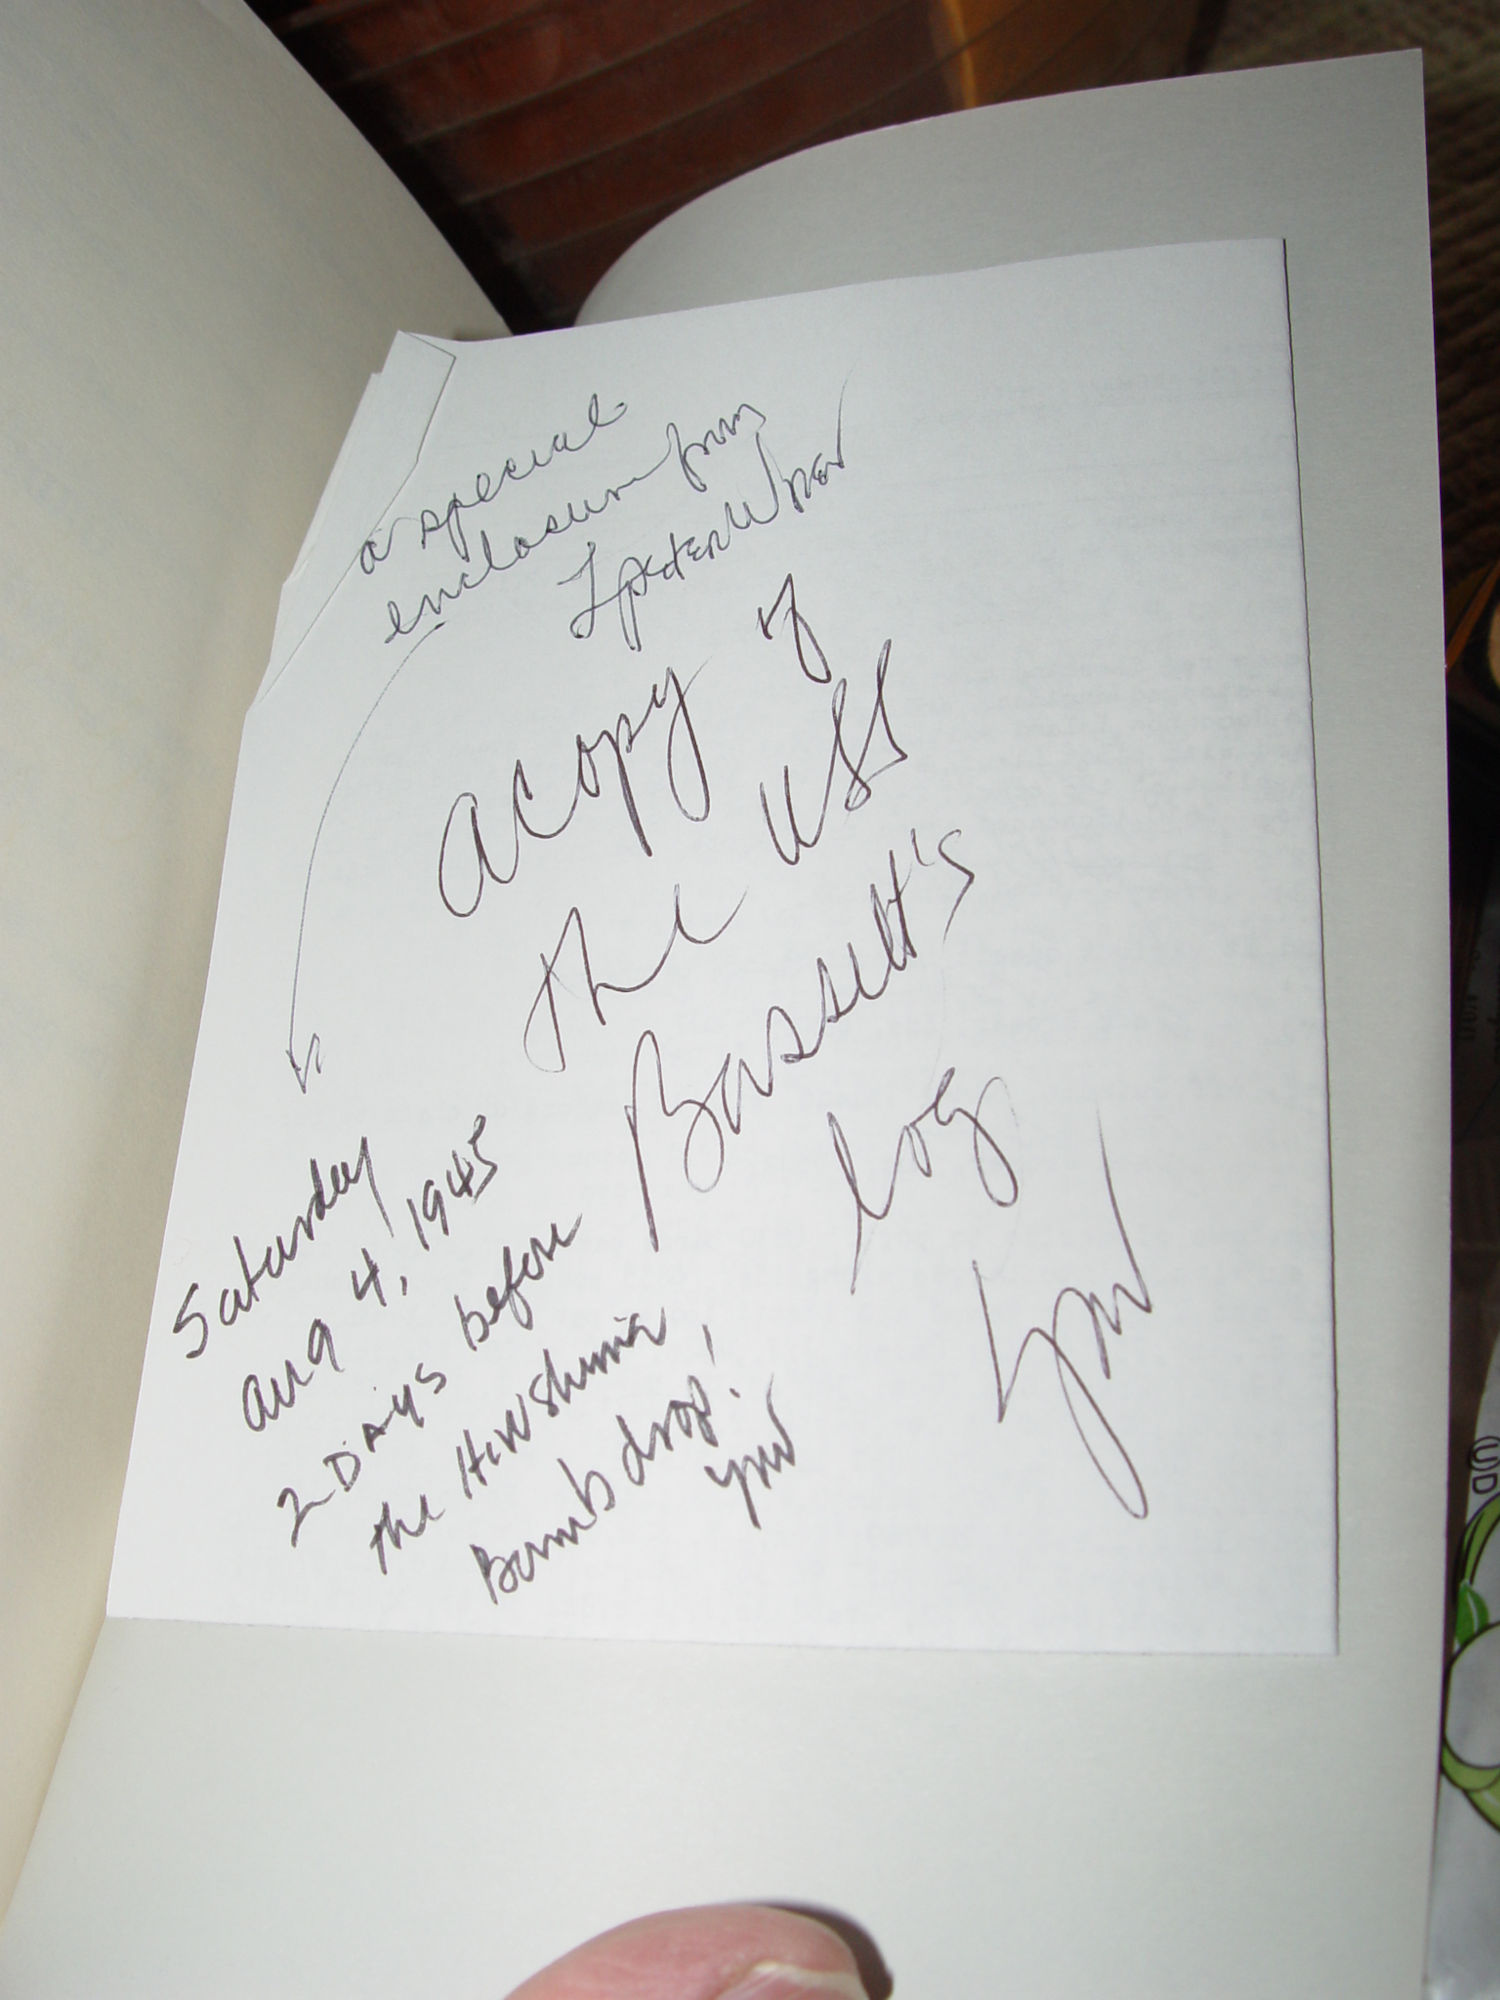 a special
enclosure from
L Peter Wren
a copy of
the USS
Bassett's
log
LPW
Saturday
Aug 4, 1945
2 Days before
the Hiroshima
Bomb drop!
LPW